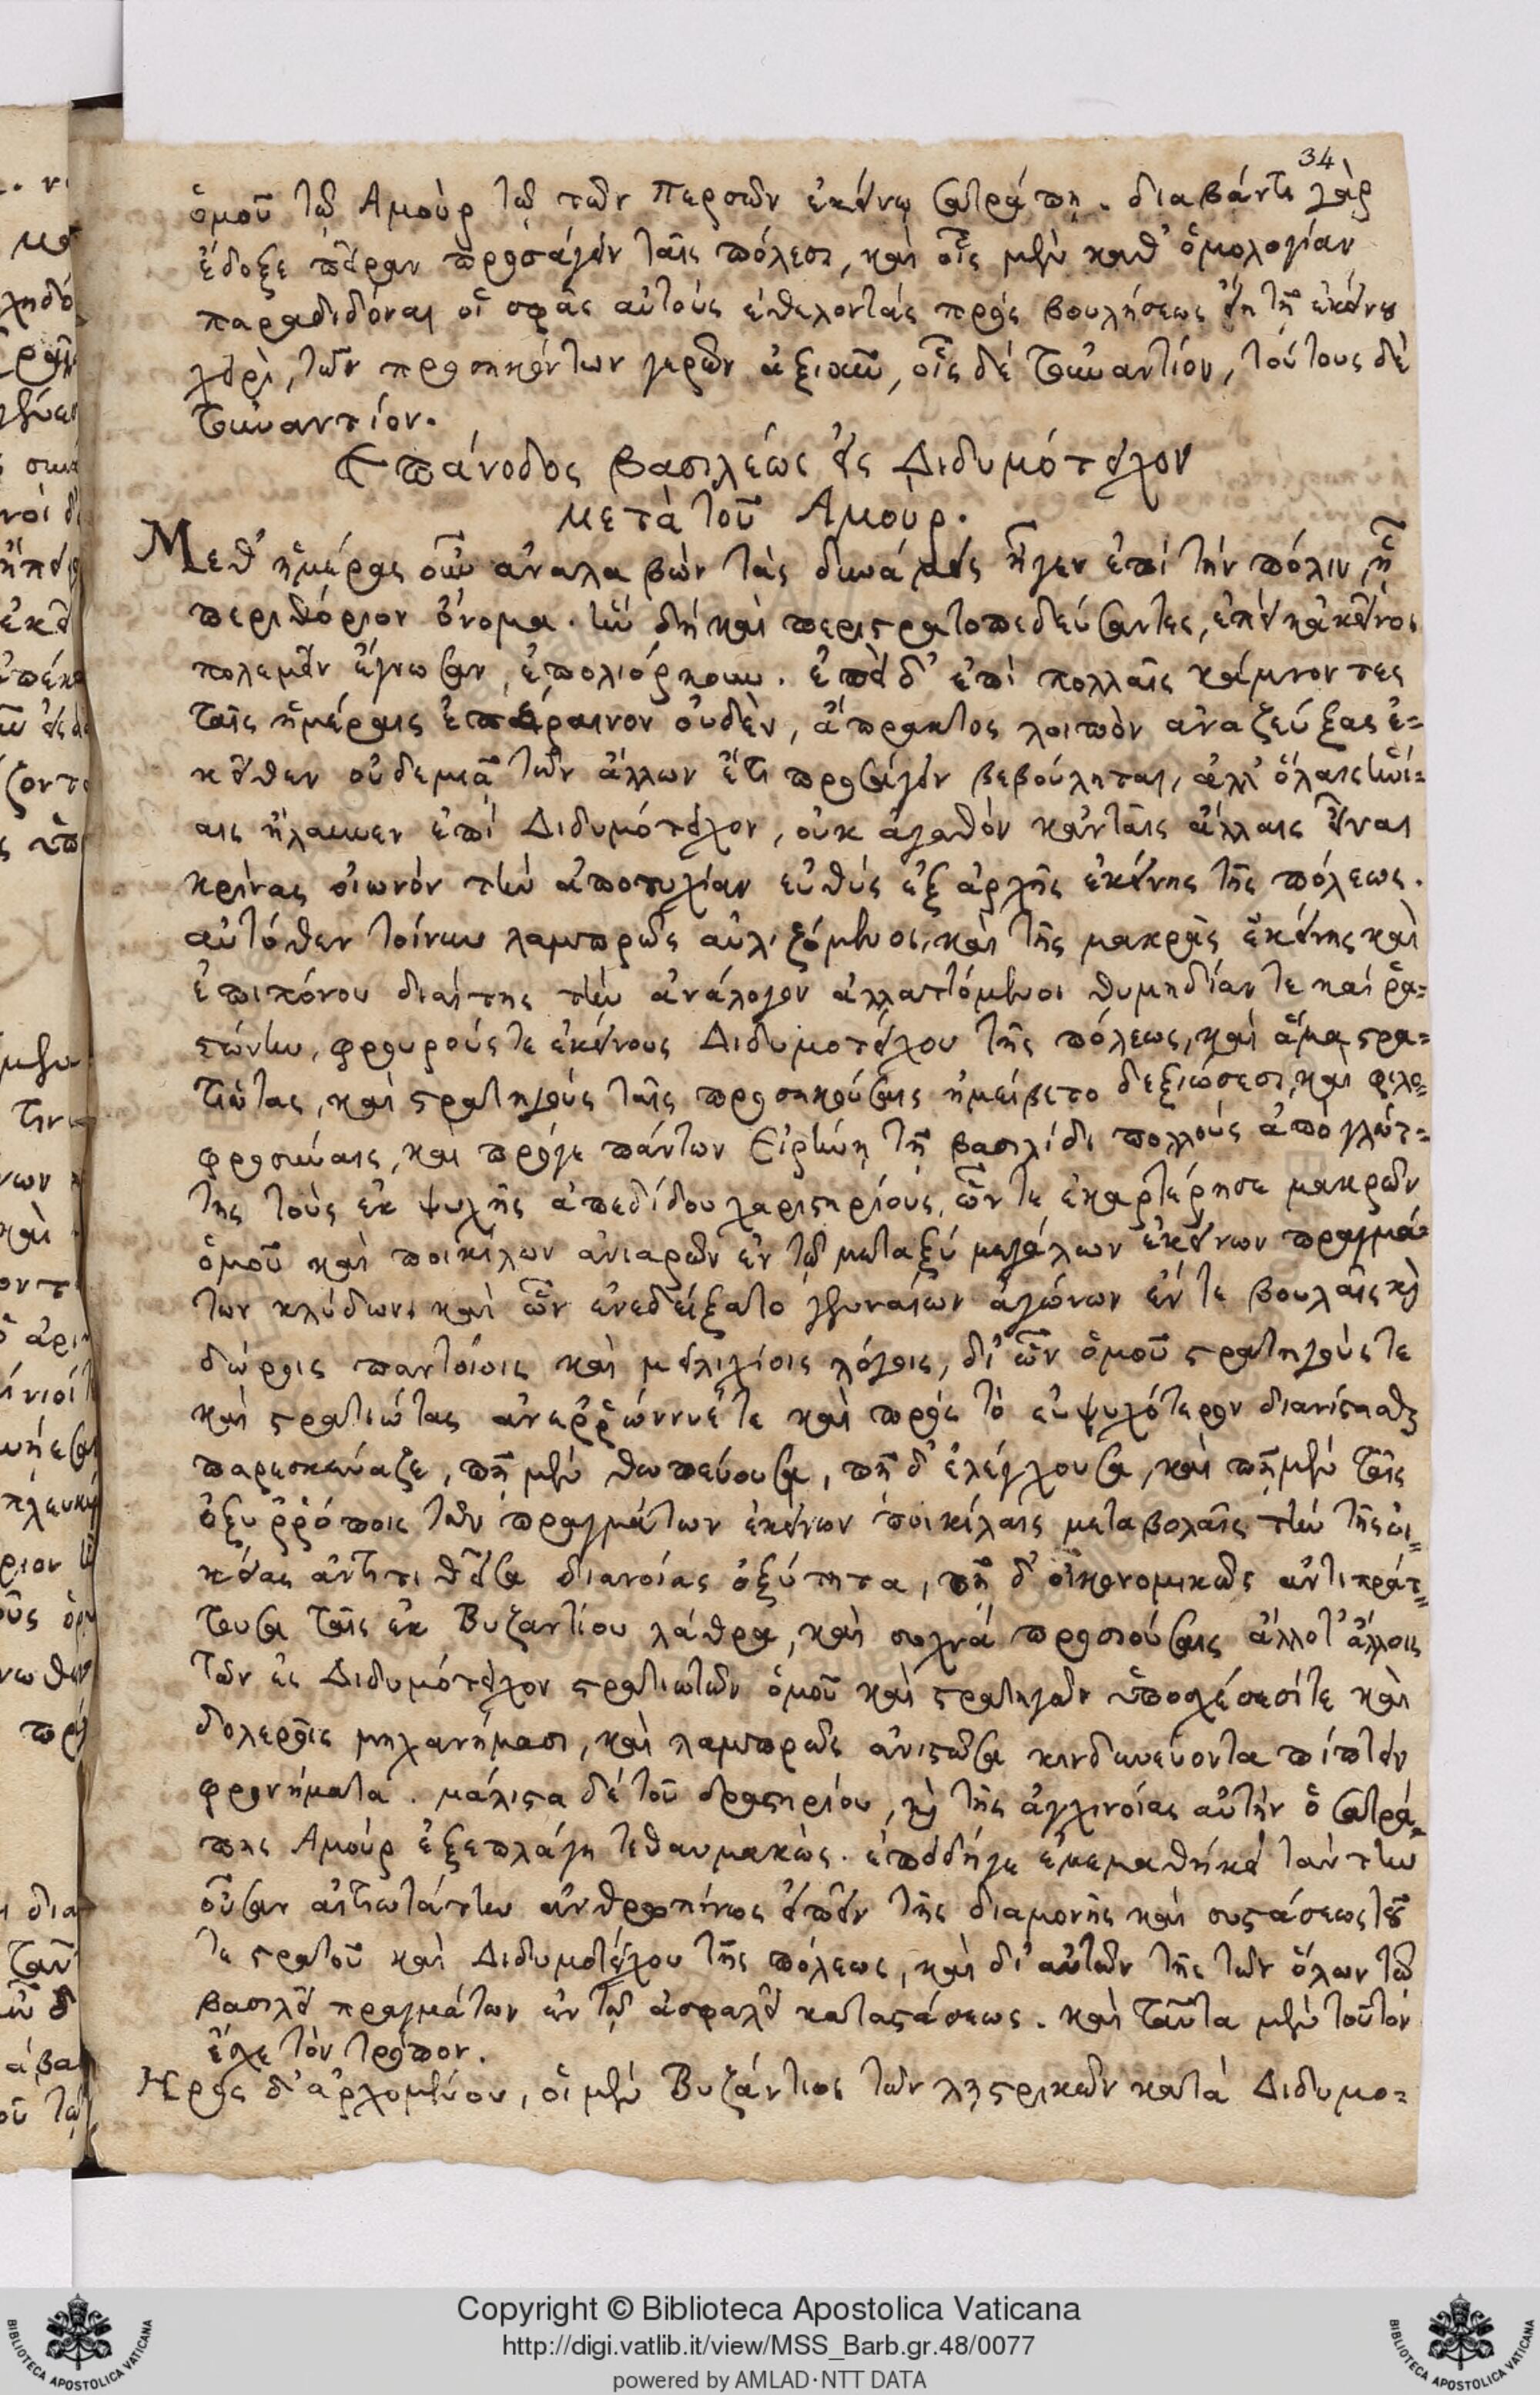 34
ὁμοῦ τῷ Ἀμοὺρ τῷ τῶν Περσῶν ἐκείνῳ σατράπῃ. διαβάντι γὰρ
ἔδοξε πεῖραν προσάγειν ταῖς πόλεσι, καὶ οἷς μὲν καθ' ὁμολογίαν
παραδιδόναι οἳ σφᾶς αὐτοὺς ἐθελοντὰς πρὸς βουλήσεως εἴη τῇ ἐκείνου
χειρὶ, τῶν προσηκόντων γερῶν ἀξιοῦν, οἷς δὲ τοὐναντίον, τούτους δὲ
τοὐναντίον.
Ἐπάνοδος βασιλέως εἰς Διδυμότειχον
μετὰ τοῦ Ἀμούρ.
Μεθ' ἡμέρας οὖν ἀναλαβὼν τὰς δυνάμεις ἦγεν ἐπὶ τὴν πόλιν, ᾗ
περιθόριον ὄνομα. ἣν δὴ καὶ περιστρατοπεδεύσαντες, ἐπεὶ κἀκεῖνοι
πολεμεῖν ἔγνωσαν, ἐπολιόρκουν. ἐπεὶ δ' ἐπὶ πολλαῖς κάμνοντες
ταῖς ἡμέραις ἐπέραινον οὐδὲν, ἄπρακτος λοιπὸν ἀναζεύξας ἐ-
κεῖθεν οὐδεμιᾷ τῶν ἄλλων ἔτι προσάγειν βεβούληται, ἀλλ' ὅλαις ἡνί-
αις ἤλαυνεν ἐπὶ Διδυμότειχον, οὐκ ἀγαθὸν κἀν ταῖς ἄλλαις εἶναι
κρίνας οἰωνὸν τὴν ἀποτυχίαν εὐθὺς ἐξ ἀρχῆς ἐκείνης τῆς πόλεως.
αὐτόθεν τοίνυν λαμπρῶς αὐλιζόμενοι, καὶ τῆς μακρᾶς ἐκείνης καὶ
ἐπιπόνου διαίτης τὴν ἀνάλογον ἀλλαττόμενοι θυμηδίαν τε καὶ ῥα-
στώνην, φρουρούς τε ἐκείνους Διδυμοτείχου τῆς πόλεως, καὶ ἅμα στρα-
τιώτας, καὶ στρατηγοὺς ταῖς προσηκούσαις ἠμείβετο δεξιώσεσι, καὶ φιλο-
φροσύναις, καὶ πρό γε πάντων Εἰρήνῃ τῇ βασιλίδι πολλοὺς ἀπὸ γλώτ-
της τοὺς ἐκ ψυχῆς ἀπεδίδου χαριστηρίους, ὧν τε ἐκαρτέρησε μακρῶν
ὁμοῦ καὶ ποικίλων ἀνιαρῶν ἐν τῷ μεταξὺ μεγάλων ἐκείνων πραγμά-
των κλύδωνι καὶ ὧν ἐνεδείξατο γενναίων ἀγώνων ἔν τε βουλαῖς καὶ
δώροις παντοίοις καὶ μειλιχίοις λόγοις, δι' ὧν ὁμοῦ στρατηγούς τε
καὶ στρατιώτας ἀνεῤῥώννυέ τε καὶ πρὸς τὸ εὐψυχότερον διανίστασθαι
παρεσκεύαζε, πῇ μὲν θωπεύουσα, πῇ δ' ἐλέγχουσα, καὶ πῇ μὲν ταῖς
ὀξυῤῥόποις τῶν πραγμάτων ἐκείνων ποικίλαις μεταβολαῖς τὴν τῆς οἰ-
κείας ἀντιτιθεῖσα διανοίας ὀξύτητα, πῇ δ' οἰκονομικῶς ἀντιπράτ-
τουσα ταῖς ἐκ Βυζαντίου λάθρᾳ, καὶ συχνὰ προσιούσαις ἄλλοτ' ἄλλοις
τῶν ἐς Διδυμότειχον στρατιωτῶν ὁμοῦ καὶ στρατηγῶν ὑποσχέσεσί τε καὶ
δολεροῖς μηχανήμασι, καὶ λαμπρῶς ἀνιστῶσα κινδυνεύοντα πίπτειν
φρονήματα. μάλιστα δὲ τοῦ δραστηρίου, καὶ τῆς ἀγχινοίας αὐτὴν ὁ σατρά-
πης Ἀμοὺρ ἐξεπλάγη τεθαυμακώς. ἐπειδήγε ἐμεμαθήκει ταύτην
οὖσαν αἰτιωτάτην ἀνθρωπίνως εἰπεῖν τῆς διαμονῆς καὶ συστάσεως τοῦ
τε στρατοῦ καὶ Διδυμοτείχου τῆς πόλεως, καὶ δι' αὐτῶν τῆς τῶν ὅλων τῷ
βασιλεῖ πραγμάτων ἐν τῷ ἀσφαλεῖ καταστάσεως. καὶ ταῦτα μὲν τοῦτον
εἶχε τὸν τρόπον.
Ἦρος δ' ἀρχομένου, οἱ μὲν Βυζάντιοι τῶν λῃστρικῶν κατὰ Διδυμο-
Copyright © Biblioteca Apostolica Vaticana
http://digi.vatlib.it/view/MSS_Barb.gr.48/0077
powered by AMLAD·NTT DATA
BIBLIOTECA APOSTOLICA VATICANA
BIBLIOTECA APOSTOLICA VATICANA